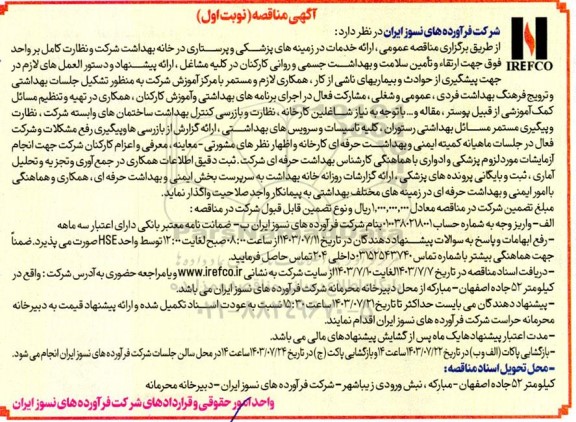 آگهی مناقصه (نوبت اول)
IREFCO
شرکت فرآورده های نسوز ایران در نظر دارد :
از طریق برگزاری مناقصه عمومی ، ارائه خدمات در زمینه های پزشکی و پرستاری در خانه بهداشت شرکت و نظارت کامل بر واحد
فوق جهت ارتقاء و تأمین سلامت و بهداشت جسمی و روانی کارکنان در کلیه مشاغل ، ارائه پیشنهاد و دستور العمل های لازم در
جهت پیشگیری از حوادث و بیماریهای ناشی از کار ، همکاری لازم و مستمر با مرکز آموزش شرکت به منظور تشکیل جلسات بهداشتی
و ترویج فرهنگ بهداشت فردی ، عمومی و شغلی ، مشارکت فعال در اجرای برنامه های بهداشتی و آموزش کارکنان ، همکاری در تهیه و تنظیم مسائل
کمک آموزشی از قبیل پوستر ، مقاله و... با توجه به نیاز شاغلین کارخانه ، نظارت و بازرسی کنترل بهداشت ساختمان های وابسته شرکت ، نظارت
و پیگیری مستمر مسائل بهداشتی رستوران ، کلیه تاسیسات و سرویس های بهداشتی ، ارائه گزارش از بازرسی ها و پیگیری رفع مشکلات و شرکت
فعال در جلسات ماهیانه کمیته ایمنی و بهداشت حرفه ای کارخانه و اظهار نظر های مشورتی - معاینه ، معرفی و اعزام کارکنان شرکت جهت انجام
آزمایشات مورد لزوم پزشکی و ادواری با هماهنگی کارشناس بهداشت حرفه ای شرکت . ثبت دقیق اطلاعات همکاری در جمع آوری و تجزیه و تحلیل
آماری ، ثبت و بایگانی پرونده های پزشکی ، ارائه گزارشات روزانه خانه بهداشت به سرپرست بخش ایمنی و بهداشت حرفه ای ، همکاری و هماهنگی
با امور ایمنی و بهداشت حرفه ای در زمینه های مختلف بهداشتی به پیمانکار واجد صلاحیت واگذار نماید.
مبلغ تضمین شرکت در مناقصه معادل ۱,۰۰۰,۰۰۰,۰۰۰ ریال و نوع تضمین قابل قبول شرکت در مناقصه :
الف - واریز وجه به شماره حساب بنام شرکت فرآورده های نسوز ایران ب - ضمانت نامه معتبر بانکی دارای اعتبار سه ماهه
- رفع ابهامات و پاسخ به سوالات پیشنهاد دهندگان در تاریخ ۱۴۰۳/۰۷/۱۱ از ساعت ۰۸:۰۰ صبح لغایت ۱۲:۰۰ توسط واحد HSE صورت می پذیرد. ضمناً
جهت هماهنگی بیشتر با شماره تماس ۰۳۱۵۲۵۴۳۷۴۰ داخلی ۲۰۴ تماس حاصل فرمایید.
- دریافت اسناد مناقصه در تاریخ ۱۴۰۳/۰۷/۷ لغایت ۱۴۰۳/۰۷/۱۰ از سایت شرکت به نشانی www.irefco.ir و یا مراجعه حضوری به آدرس شرکت : واقع در
کیلومتر ۵۲ جاده اصفهان - مبارکه از محل دبیرخانه محرمانه شرکت فرآورده های نسوز ایران می باشد.
- پیشنهاد دهندگان می بایست حداکثر تا تاریخ ۱۴۰۳/۰۷/۲۱ ساعت ۱۵:۳۰ نسبت به عودت اسناد تکمیل شده و ارائه پیشنهاد قیمت به دبیرخانه
محرمانه حراست شرکت فرآورده های نسوز ایران اقدام نمایند.
- مدت اعتبار پیشنهادها یک ماه پس از گشایش پیشنهادهای مالی می باشد.
- بازگشایی پاکات (الف و ب) در تاریخ ۱۴۰۳/۰۷/۲۲ ساعت ۱۴ و بازگشایی پاکات (ج) در تاریخ ۱۴۰۳/۰۷/۲۴ ساعت ۱۴ در محل سالن جلسات شرکت فرآورده های نسوز ایران انجام می شود.
- محل تحویل اسناد مناقصه :
کیلومتر ۵۲ جاده اصفهان - مبارکه ، نبش ورودی زیباشهر - شرکت فرآورده های نسوز ایران - دبیرخانه محرمانه
واحد امور حقوقی و قراردادهای شرکت فرآورده های نسوز ایران